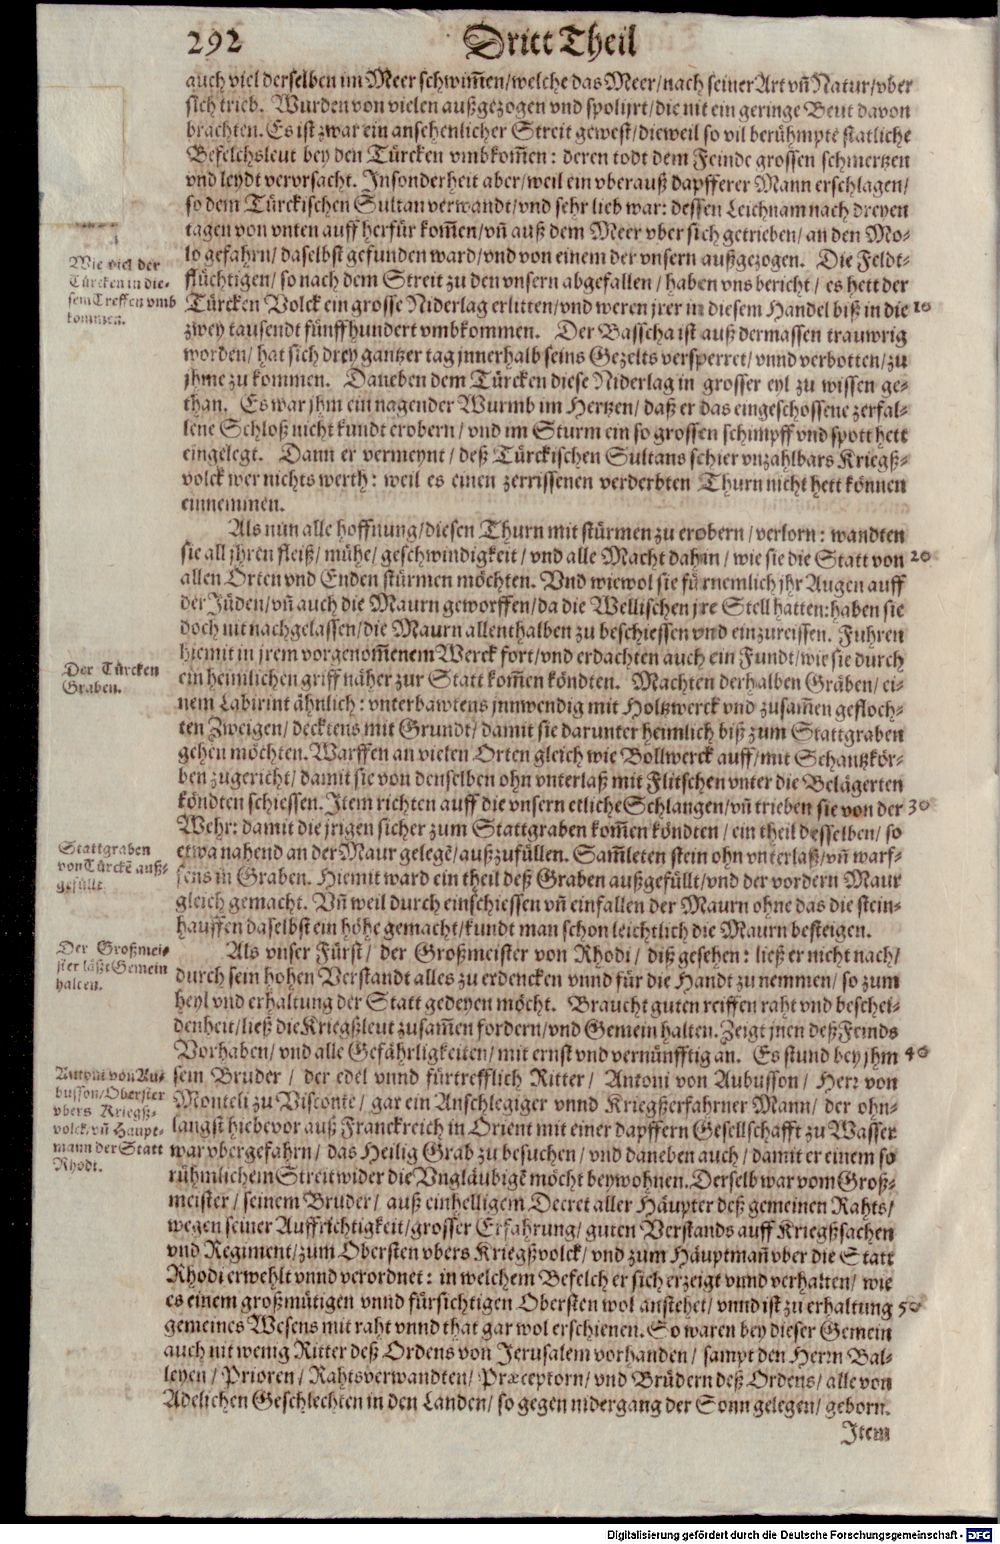 292
Dritt Theil
auch viel derselben im Meer schwim̃en/welche das Meer/nach seiner Art vñ Natur/vber
sich trieb. Wurden von vielen außgezogen vnd spolijrt/die nit ein geringe Beut davon
brachten. Es ist zwar ein ansehenlicher Streit gewest/dieweil so vil berühmpte statliche
Befelchsleut bey den Türcken vmbkom̃en: deren todt dem Feinde grossen schmertzen
vnd leydt vervrsacht. Insonderheit aber/weil ein vberauß dapfferer Mann erschlagen/
so dem Türckischen Sultan verwandt/vnd sehr lieb war: dessen Leichnam nach dreyen
tagen von vnten auff herfür kom̃en/vñ auß dem Meer vber sich getrieben/an den Mo-
lo gefahrn/daselbst gefunden ward/vnd von einem der vnsern außgezogen. Die Feldt-
flüchtigen/so nach dem Streit zu den vnsern abgefallen/haben vns bericht/es hett der
Türcken Volck ein grosse Niderlag erlitten/vnd weren jrer in diesem Handel biß in die 10
zwey tausendt fünffhundert vmbkommen. Der Bassa ist auß dermassen trauwrig
worden/hat sich drey gantzer tag jnnerhalb seins Gezelts versperret/vnnd verbotten/zu
jhme zu kommen. Daneben dem Türcken diese Niderlag in grosser eyl zu wissen ge-
than. Es war jhm ein nagender Wurmb im Hertzen/daß er das eingeschossene zerfal-
lene Schloß nicht kundt erobern/vnd im Sturm ein so grossen schimpff vnd spott hett
eingelegt. Dann er vermeynt/deß Türckischen Sultans schier vnzahlbars Kriegß-
volck wer nichts werth: weil es einen zerrissenen verderbten Thurn nicht hett können
einnemmen.
Als nun alle hoffnung/diesen Thurn mit stürmen zu erobern/verlorn: wandten
sie all jhren fleiß/mühe/geschwindigkeit/vnd alle Macht dahin/wie sie die Statt von 20
allen Orten vnd Enden stürmen möchten. Vnd wiewol sie fürnemlich jhr Augen auff
der Jüden/vñ auch die Maurn geworffen/da die Wellischen jre Stell hatten: haben sie
doch nit nachgelassen/die Maurn allenthalben zu beschiessen vnd einzureissen. Fuhren
hiemit in jrem vorgenom̃enem Werck fort/vnd erdachten auch ein Fundt/wie sie durch
ein heimlichen griff näher zur Statt kom̃en köndten. Machten derhalben Gräben/ei-
nem Labirint ähnlich: vnterbawtens jnnwendig mit Holtzwerck vnd zusam̃en gefloch-
ten Zweigen/decktens mit Grundt/damit sie darunter heimlich biß zum Stattgraben
gehen möchten. Warffen an vielen Orten gleich wie Bollwerck auff/mit Schantzkör-
ben zugericht/damit sie von denselben ohn vnterlaß mit Flitschen vnter die Belägerten
köndten schiessen. Item richten auff die vnsern etliche Schlangen/vñ trieben sie von der 30
Wehr: damit die jrigen sicher zum Stattgraben kom̃en köndten/ein theil desselben/so
etwa nahend an der Maur gelegẽ/außzufüllen. Sam̃leten stein ohn vnterlaß/vñ warf-
fens in Graben. Hiemit ward ein theil deß Graben außgefüllt/vnd der vordern Maur
gleich gemacht. Vñ weil durch einschiessen vñ einfallen der Maurn ohne das die stein-
hauffen daselbst ein höhe gemacht/kundt man schon leichtlich die Maurn besteigen.
Als vnser Fürst/der Großmeister von Rhodi/diß gesehen: ließ er nicht nach/
durch sein hohen Verstandt alles zu erdencken vnnd für die Handt zu nemmen/so zum
heyl vnd erhaltung der Statt gedeyen möcht. Braucht guten reiffen raht vnd beschei-
denheit/ließ die Kriegßleut zusam̃en fordern/vnd Gemein halten. Zeigt jnen deß Feinds
Vorhaben/vnd alle Gefährligkeiten/mit ernst vnd vernünfftig an. Es stund bey jhm 40
sein Bruder/der edel vnnd fürtrefflich Ritter/Antoni von Aubusson/Herr von
Monteli zu Visconte/gar ein Anschlegiger vnnd Kriegßerfahrner Mann/der ohn-
langst hiebevor auß Franckreich in Orient mit einer dapffern Gesellschafft zu Wasser
war vbergefahrn/das Heilig Grab zu besuchen/vnd daneben auch/damit er einem so
rühmlichem Streit wider die Vngläubigẽ möcht beywohnen. Derselb war vom Groß-
meister/seinem Bruder/auß einhelligem Decret aller Häupter deß gemeinen Rahts/
wegen seiner Auffrichtigkeit/grosser Erfahrung/guten Verstands auff Kriegßsachen
vnd Regiment/zum Obersten vbers Kriegßvolck/vnd zum Häuptmañ vber die Statt
Rhodi erwehlt vnnd verordnet: in welchem Befelch er sich erzeigt vnnd verhalten/wie
es einem großmütigen vnnd fürsichtigen Obersten wol anstehet/vnnd ist zu erhaltung 50
gemeines Wesens mit raht vnnd that gar wol erschienen. So waren bey dieser Gemein
auch nit wenig Ritter deß Ordens von Jerusalem vorhanden/sampt den Herrn Bal-
leyen/Prioren/Rahtsverwandten/Præceptorn/vnd Brüdern deß Ordens/alle von
Adelichen Geschlechten in den Landen/so gegen nidergang der Sonn gelegen/geborn.
Item
Wie viel der
Türcken in die-
sem Treffen vmb
kommen.
Der Türcken
Graben.
Stattgraben
von Türckẽ auß-
gefüllt.
Der Großmei-
ster läßt Gemein
halten.
Antoni von Au-
busson/Oberster
vbers Kriegß-
volck/vñ Haupt-
mann der Statt
Rhodi.
Digitalisierung gefördert durch die Deutsche Forschungsgemeinschaft - DFG